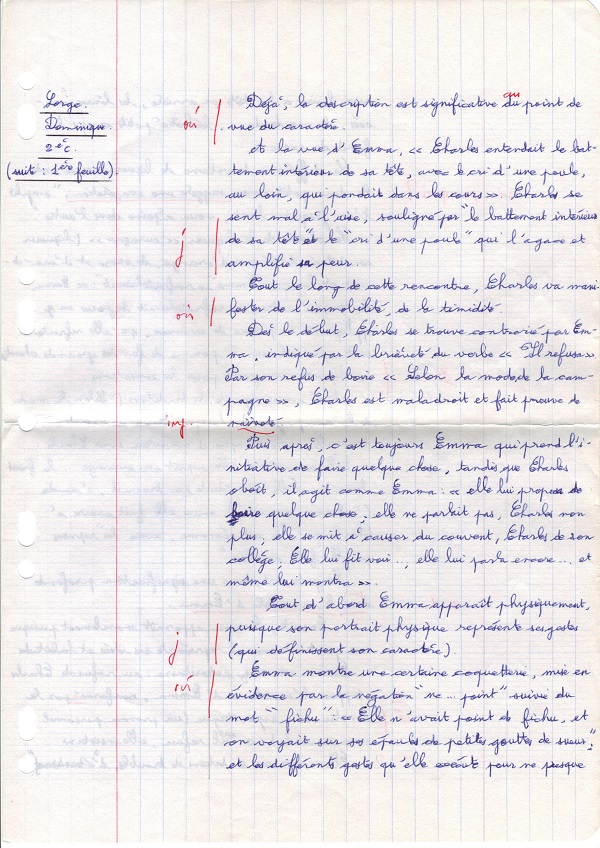 Lorge
Dominique
2e C.
(suite : 1ère feuille)
oui
Déjà, la description est significative du point de
au
vue du caractère.
et la vue d'Emma, « Charles entendait le bat-
tement intérieur de sa tête, avec le cri d'une poule,
au loin, qui pondait dans les cours ». Charles se
sent mal à l'aise, souligné par "le battement intérieur
de sa tête" et le "cri d'une poule" qui l'agace et
j
amplifie sa peur.
Tout le long de cette rencontre, Charles va mani-
oui
fester de l'immobilité, de la timidité.
Dès le début, Charles se trouve contrarié par Em-
ma, indiqué par la brièveté du verbe « Il refusa »
Par son refus de boire « Selon la mode de la cam-
pagne », Charles est maladroit et fait preuve de
naïveté.
Puis après, c'est toujours Emma qui prend l'i-
nitiative de faire quelque chose, tandis que Charles
obéit, il agit comme Emma : « elle lui proposa de
boire quelque chose ; elle ne parlait pas, Charles non
plus ; elle se mit à causer du couvent, Charles de son
collège ; Elle lui fit voir..., elle lui parla encore... et
même lui montra ».
Tout d'abord Emma apparaît physiquement,
puisque son portrait physique représente ses gestes
j
(qui définissent son caractère)
oui
Emma montre une certaine coquetterie, mise en
évidence par la négation "ne... point" suivie du
mot "fichu" : « Elle n'avait point de fichu, et
on voyait sur ses épaules de petites gouttes de sueur" ;
et les différents gestes qu'elle exécute pour ne presque